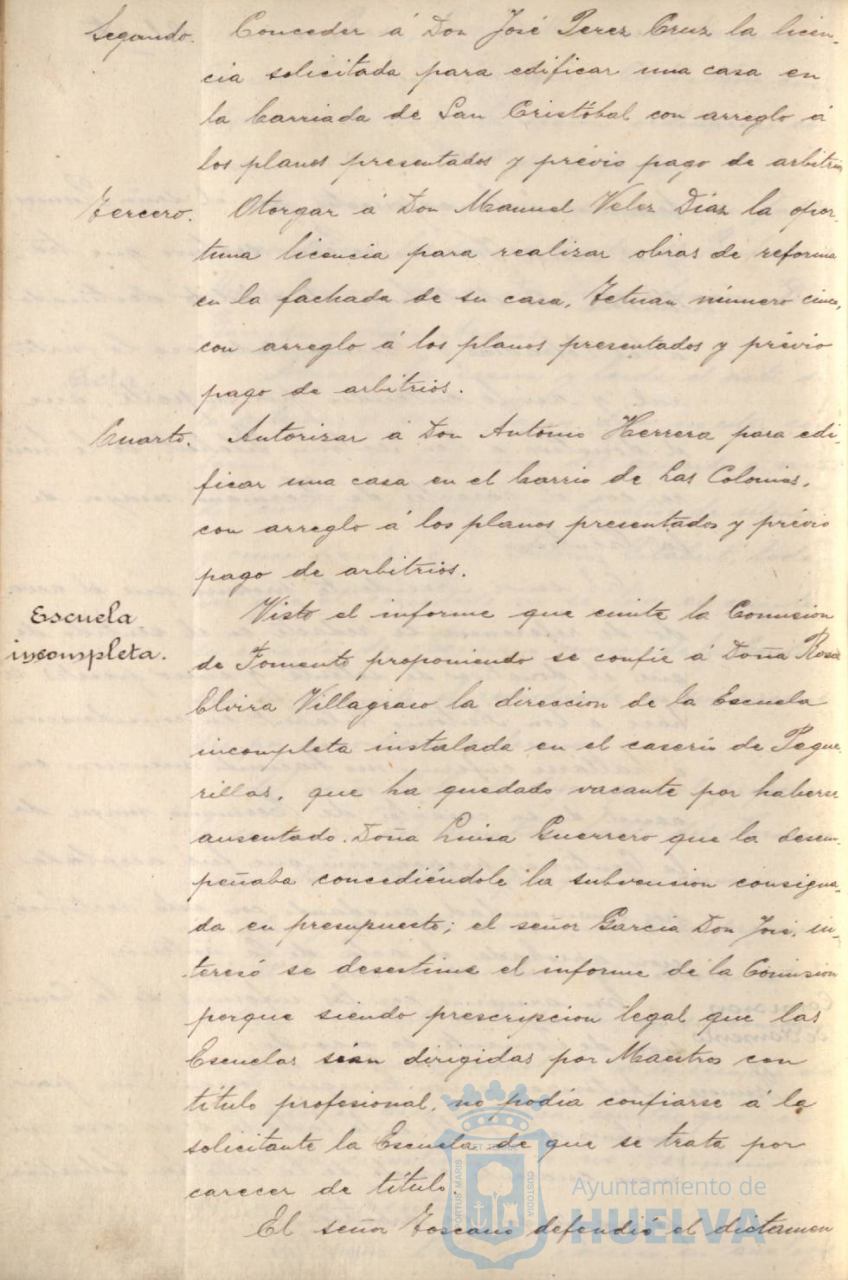 Segundo. Conceder á Don José Perez Cruz la licen-
cia solicitada para edificar una casa en
la barriada de San Cristóbal con arreglo á
los planos presentados y prévio pago de arbitrios
Tercero. Otorgar á Don Manuel Velez Diaz la opor-
tuna licencia para realizar obras de reforma
en la fachada de su casa, Tetuan número cinco,
con arreglo á los planos presentados y prévio
pago de arbitrios.
Cuarto. Autorizar á Don Antonio Herrera para edi-
ficar una casa en el barrio de Las Colonias,
con arreglo á los planos presentados y prévio
pago de arbitrios.
Escuela incompleta.
Visto el informe que emite la Comision
de Fomento proponiendo se confie á Doña Rosa
Elvira Villagraso la direccion de la Escuela
incompleta instalada en el caserio de Pegue-
rillas, que ha quedado vacante por haberse
ausentado Doña Luisa Guerrero que la desem-
peñaba concediéndole la subvension consigna-
da en presupuesto; el señor Garcia Don José, in-
teresó se desestime el informe de la Comision
porque siendo prescripcion legal que las
Escuelas sean dirigidas por Maestros con
título profesional, no podia confiarse á la
solicitante la Escuela de que se trata por
carecer de título.
El señor Toscano defendió el dictamen
PORTUS MARIS ET TERRÆ CUSTODIA
Ayuntamiento de
HUELVA